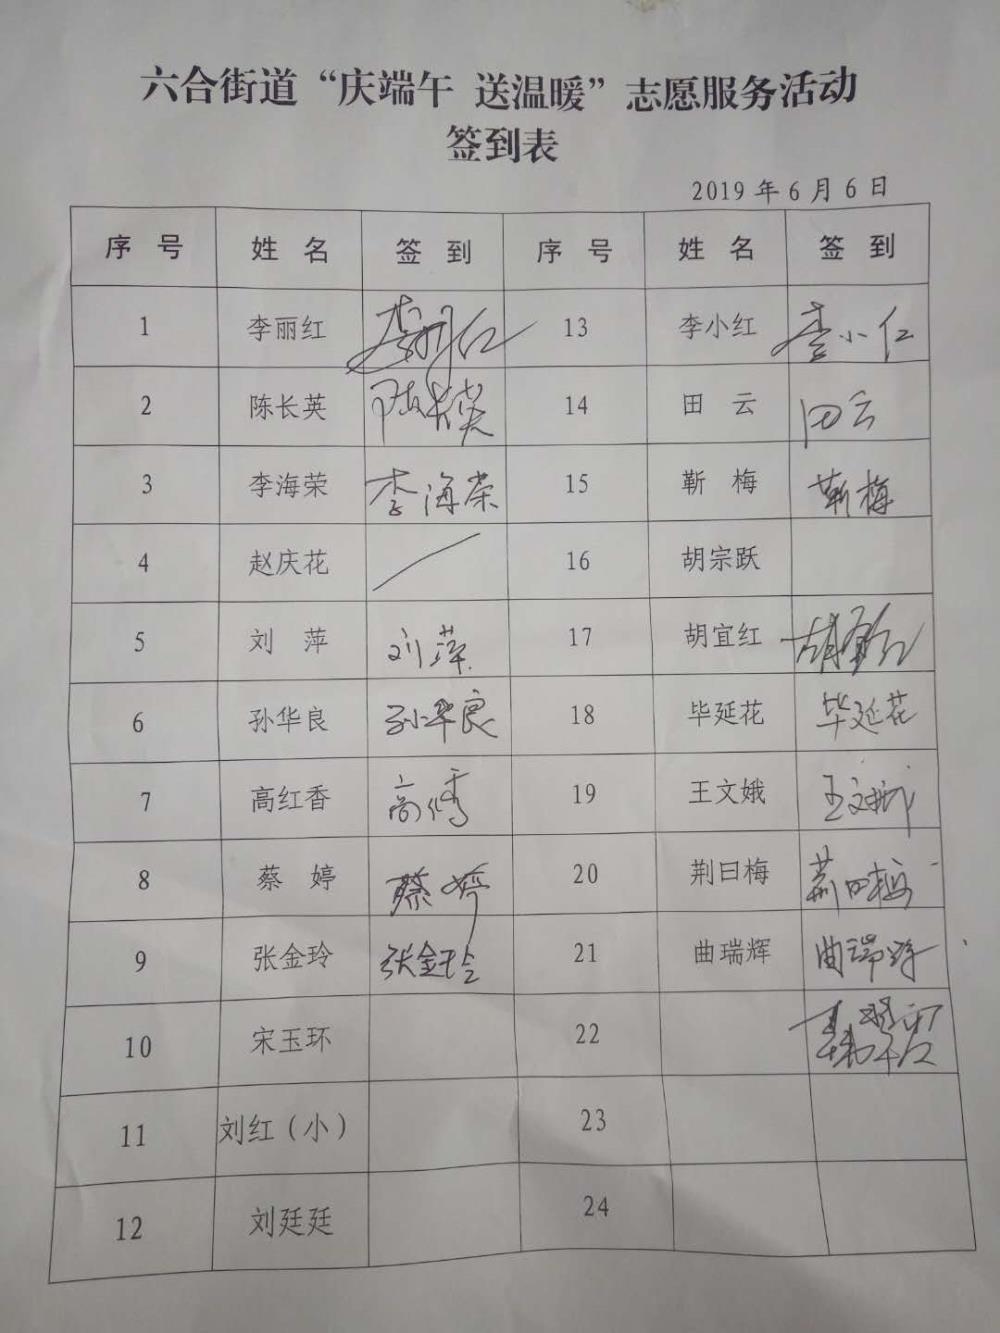 六合街道“庆端午 送温暖”志愿服务活动
签到表
2019 年 6 月 6 日
序 号 姓 名 签 到 序 号 姓 名 签 到
1 李丽红 李丽红 13 李小红 李小红
2 陈长英 陈长英 14 田 云 田云
3 李海荣 李海荣 15 靳 梅 靳梅
4 赵庆花 16 胡宗跃
5 刘 萍 刘萍 17 胡宜红 胡宜红
6 孙华良 孙华良 18 毕延花 毕延花
7 高红香 高红香 19 王文娥 王文娥
8 蔡 婷 蔡婷 20 荆曰梅 荆曰梅
9 张金玲 张金玲 21 曲瑞辉 曲瑞辉
10 宋玉环 22
11 刘红（小） 23
12 刘廷廷 24